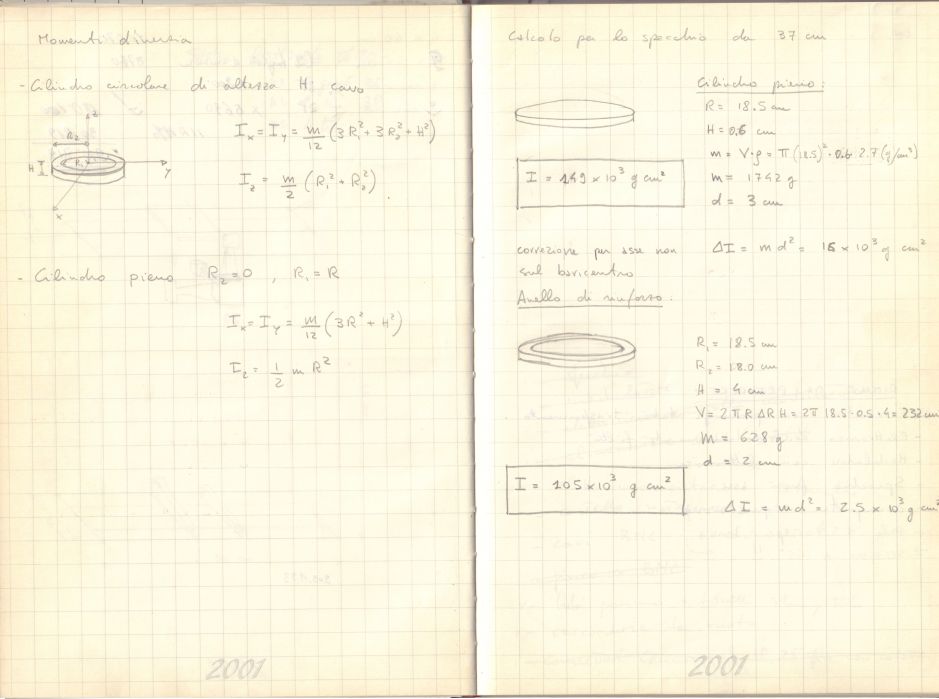 Momenti d'inerzia
- Cilindro circolare di altezza H, cavo
z
R₂
H
R₁
y
x
Iₓ = I_Y = m/12 (3R₁² + 3R₂² + H²)
I_z = m/2 (R₁² + R₂²)
- Cilindro pieno R₂=0 , R₁ = R
Iₓ = I_Y = m/12 (3R² + H²)
I_z = 1/2 m R²
2001
Calcolo per lo specchio da 37 cm
Cilindro pieno:
R = 18.5 cm
H = 0.6 cm
m = V·ρ = π (18.5)² · 0.6 · 2.7 (g/cm³)
m = 1742 g
d = 3 cm
I = 149 × 10³ g cm²
correzione per asse non
sul baricentro
ΔI = m d² = 16 × 10³ g cm²
Anello di rinforzo:
R₁ = 18.5 cm
R₂ = 18.0 cm
H = 4 cm
V = 2πR ΔR H = 2π 18.5 · 0.5 · 4 = 232 cm
m = 628 g
d = 2 cm
I = 105 × 10³ g cm²
ΔI = m d² = 2.5 × 10³ g cm²
2001